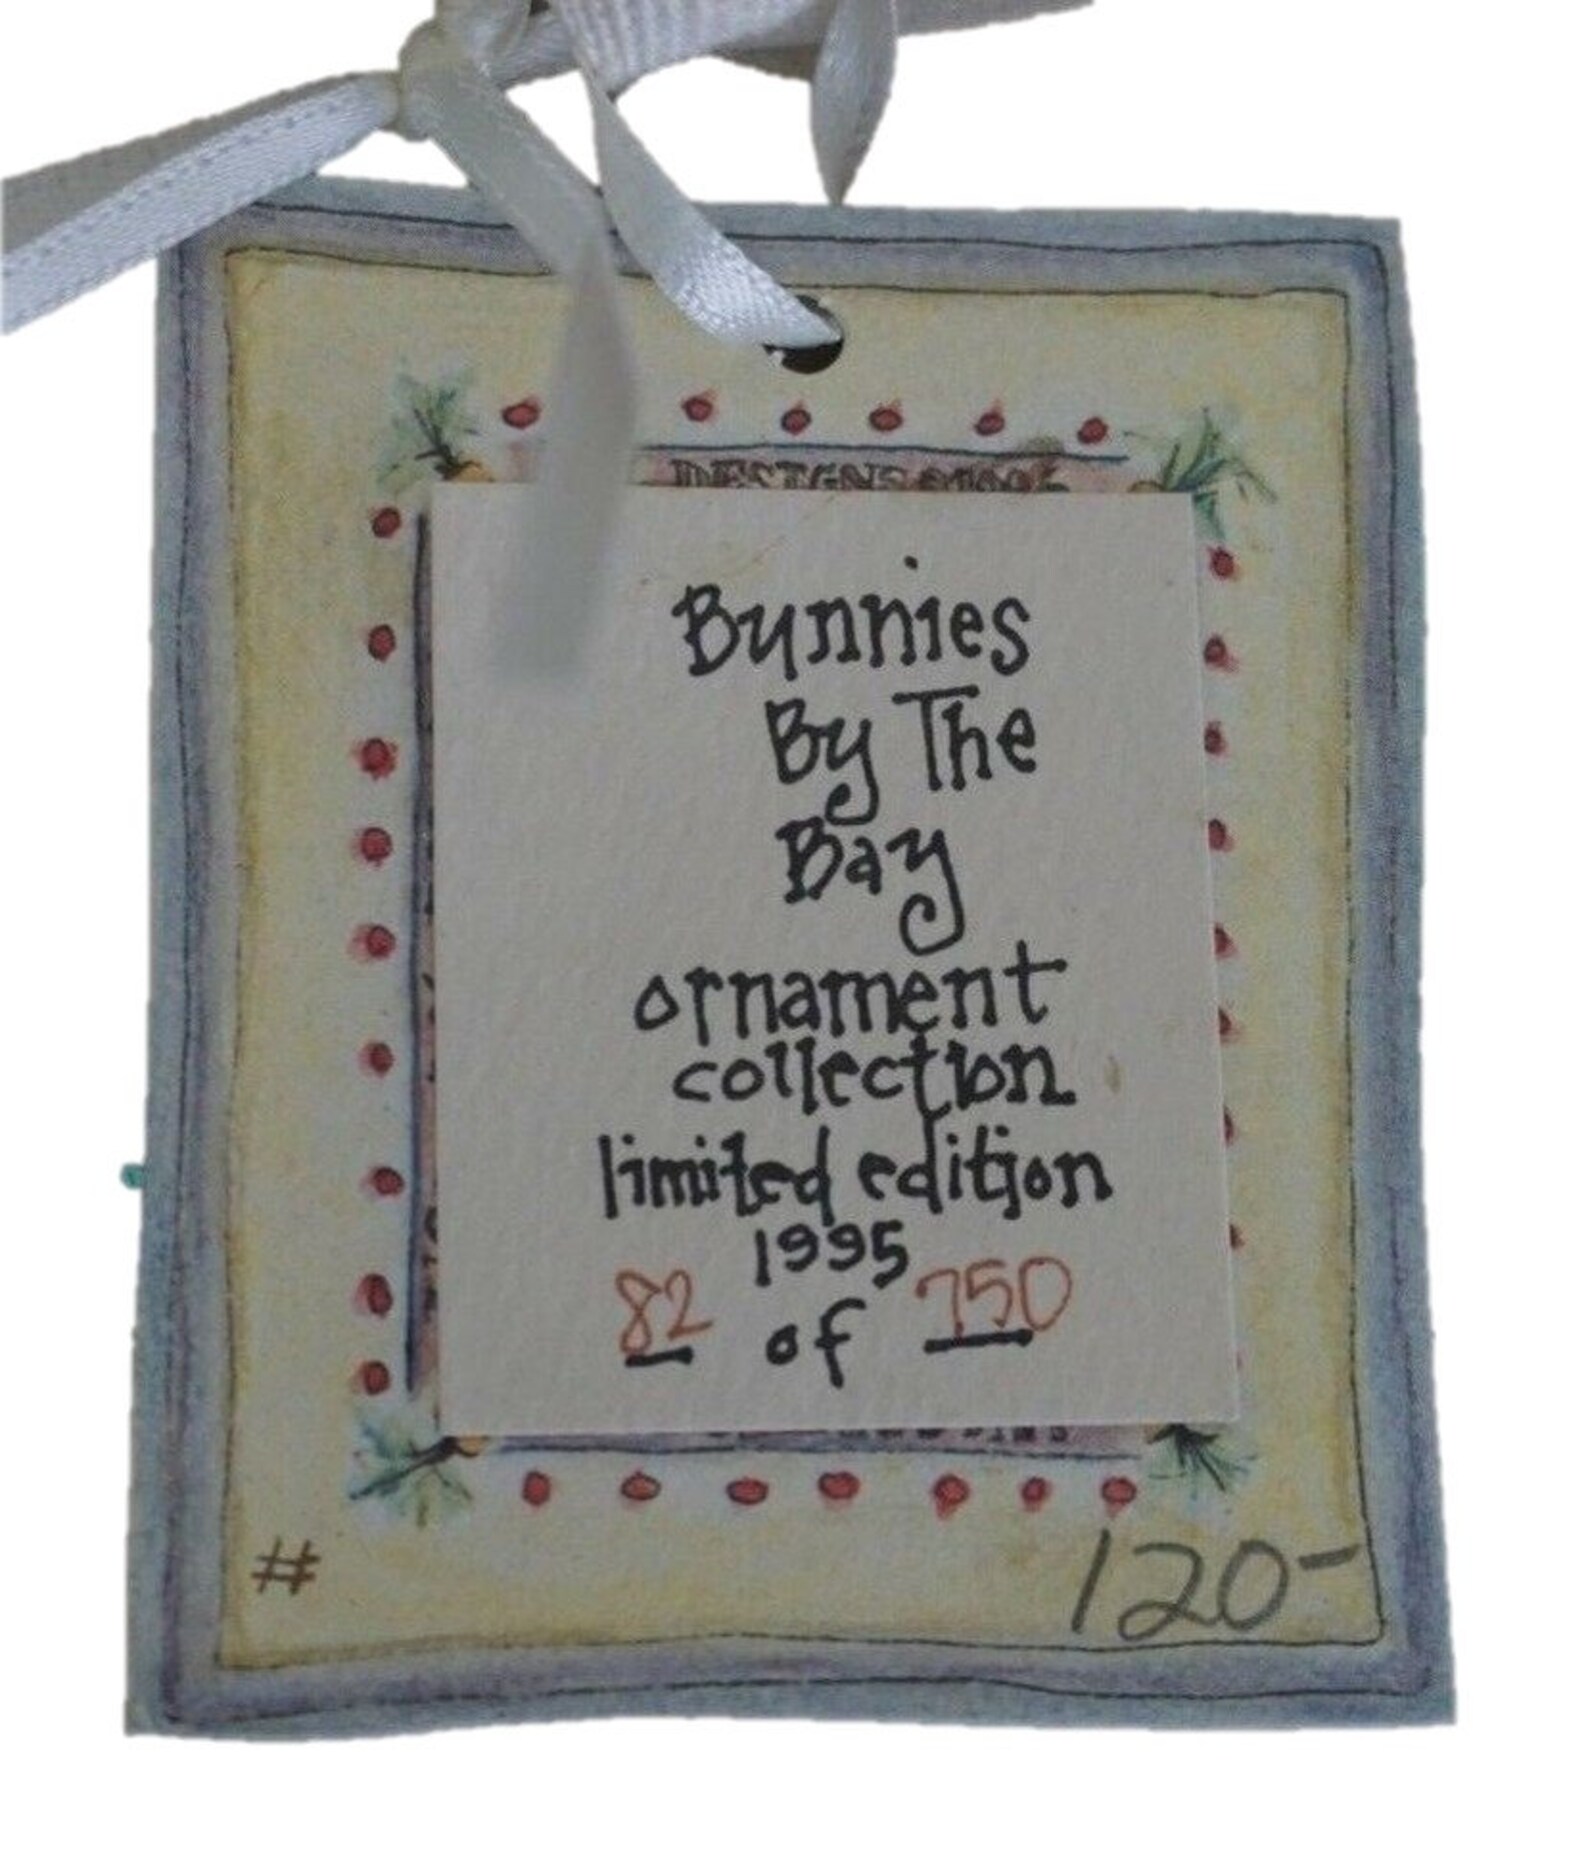 DESIGNS ©1995
Bunnies
By The
Bay
ornament
collection
limited edition
1995
82 of 750
# 120-